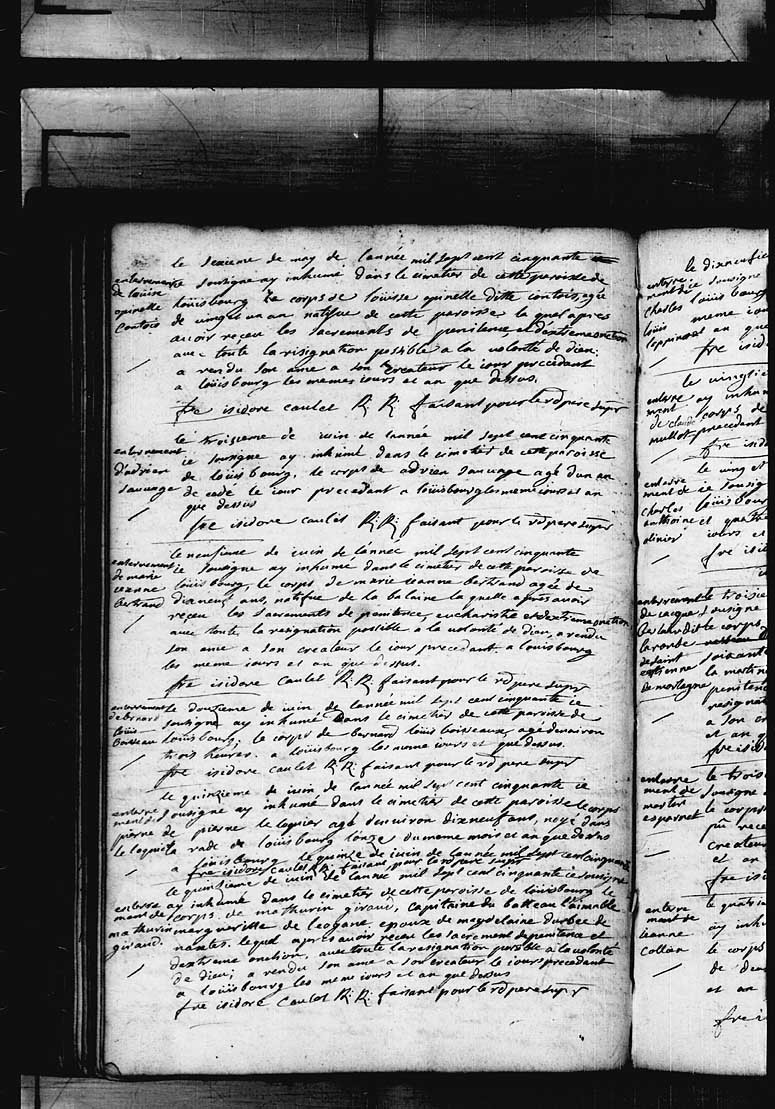 le seixieme de may de lannée mil sept cent cinquante
enterrement
de louise
opinelle
contois
ie sousigne ay inhumé dans le cimetier de cette paroisse de
louisbourg le corps de louisse opinelle ditte contois, agée
de vingt et un an natifue de cette paroisse la quel apres
auoir reçeu les sacrements de penitence et dextremeonction
auec toute la risignation possible a la volonté de dieu;
a rendu son ame a son createur le iour precedant
a loüisbourg les memes iours et an que dessus.
fre isidore caulet R: R: faisant pour le rd pere super
le troisieme de iuin de lannée mil sept cent cinquante
enterrement
d'adrien
sauvage
ie sousigne ay inhumé dans le cimetier de cette paroisse
de louisbourg, le corps de adrien sauvage agé dun an
de cede le iour precedant a loüisbourg les meme iours et an
que dessus
fre isidore caulet R: R: faisant pour le rd pere super
le neufieme de iuin de lannée mil sept cent cinquante
enterrement
de marie
ieanne
bertrand
ie sousigne ay inhumé dans le cimetier de cette paroisse de
louisbourg, le corps de marie ieanne bertrand agée de
dixneuf ans, natifue de la balaine la quelle apres avoir
reçeu les sacrements de penitence, eucharistie et dextremeonction
auec toute la resignation possible a la volonté de dieu, a rendu
son ame a son createur le iour precedant. a loüisbourg
les meme iours et an que dessus.
fre isidore caulet R: R: faisant pour le rd pere super
enterrement
de bernard
loüis
boisseau
le douzieme de iuin de lannée mil sept cent cinquante ie
sousigne ay inhumé dans le cimetier de cette paroisse de
loüisbourg, le corps de bernard loüis boisseaux, agé denviron
trois heures. a loüisbourg les meme iours et que dessus.
fre isidore caulet R: R: faisant pour le rd pere super
le quinzieme de iuin de lannée mil sept cent cinquante ie
enterre
ment de
pierre
le loquier
sousigne ay inhumé dans le cimetier de cette paroisse le corps
de pierre le loquier agé denviron dixneuf ans, noyé dans
la rade de loüisbourg lonze du meme mois et an que dessus
a loüisbourg le quinze de iuin de lannée mil sept cent cinquante
fre isidore caulet R: R: faisant pour le rd pere super
le quinzieme de iuin de lannée mil sept cent cinquante ie sousigne
enterre
ment de
mathurin
giraud.
ay inhumé dans le cimetier de cette paroisse de loüisbourg le
corps de mathurin giraud, capitaine du batteau l'aimable
margueritte de leogane epoux de magdelaine durbée de
nantes. lequel apres auoir reçeu les sacrement de penitence et
dextreme onction, auec toute la resignation possible a la volonté
de dieu; a rendu son ame a son createur le iours precedant
a loüisbourg les mens iours et an que dessus
fre isidore caulet R: R: faisant pour le rd pere super
le dixneufie
enterre
ment de
charles
louis
ie sousigne
louis bourg
meme iour
an que
fre isid
le vingtie
enterre
ment
de claude
mullot
ay inhum
corps de
precedant
fre isid
le vingt et
enterre
ment de
charles
anthoine
olinier
ie sousig
louisbour
et quatre
iours et
fre isi
enterrement
de iacque
la ronde
de saint
estienne
de mortagne
le troisie
sousigne
corps
soixante
la martin
peniten
resignat
a son cr
et an q
fre isido
enterre
ment de
martin
le troisi
sousigne
le corps
reçe
createur
et an
fre isi
enterre
ment de
ieanne
collan
le quatrie
ay inhu
le corps
de deux
et an
fre i